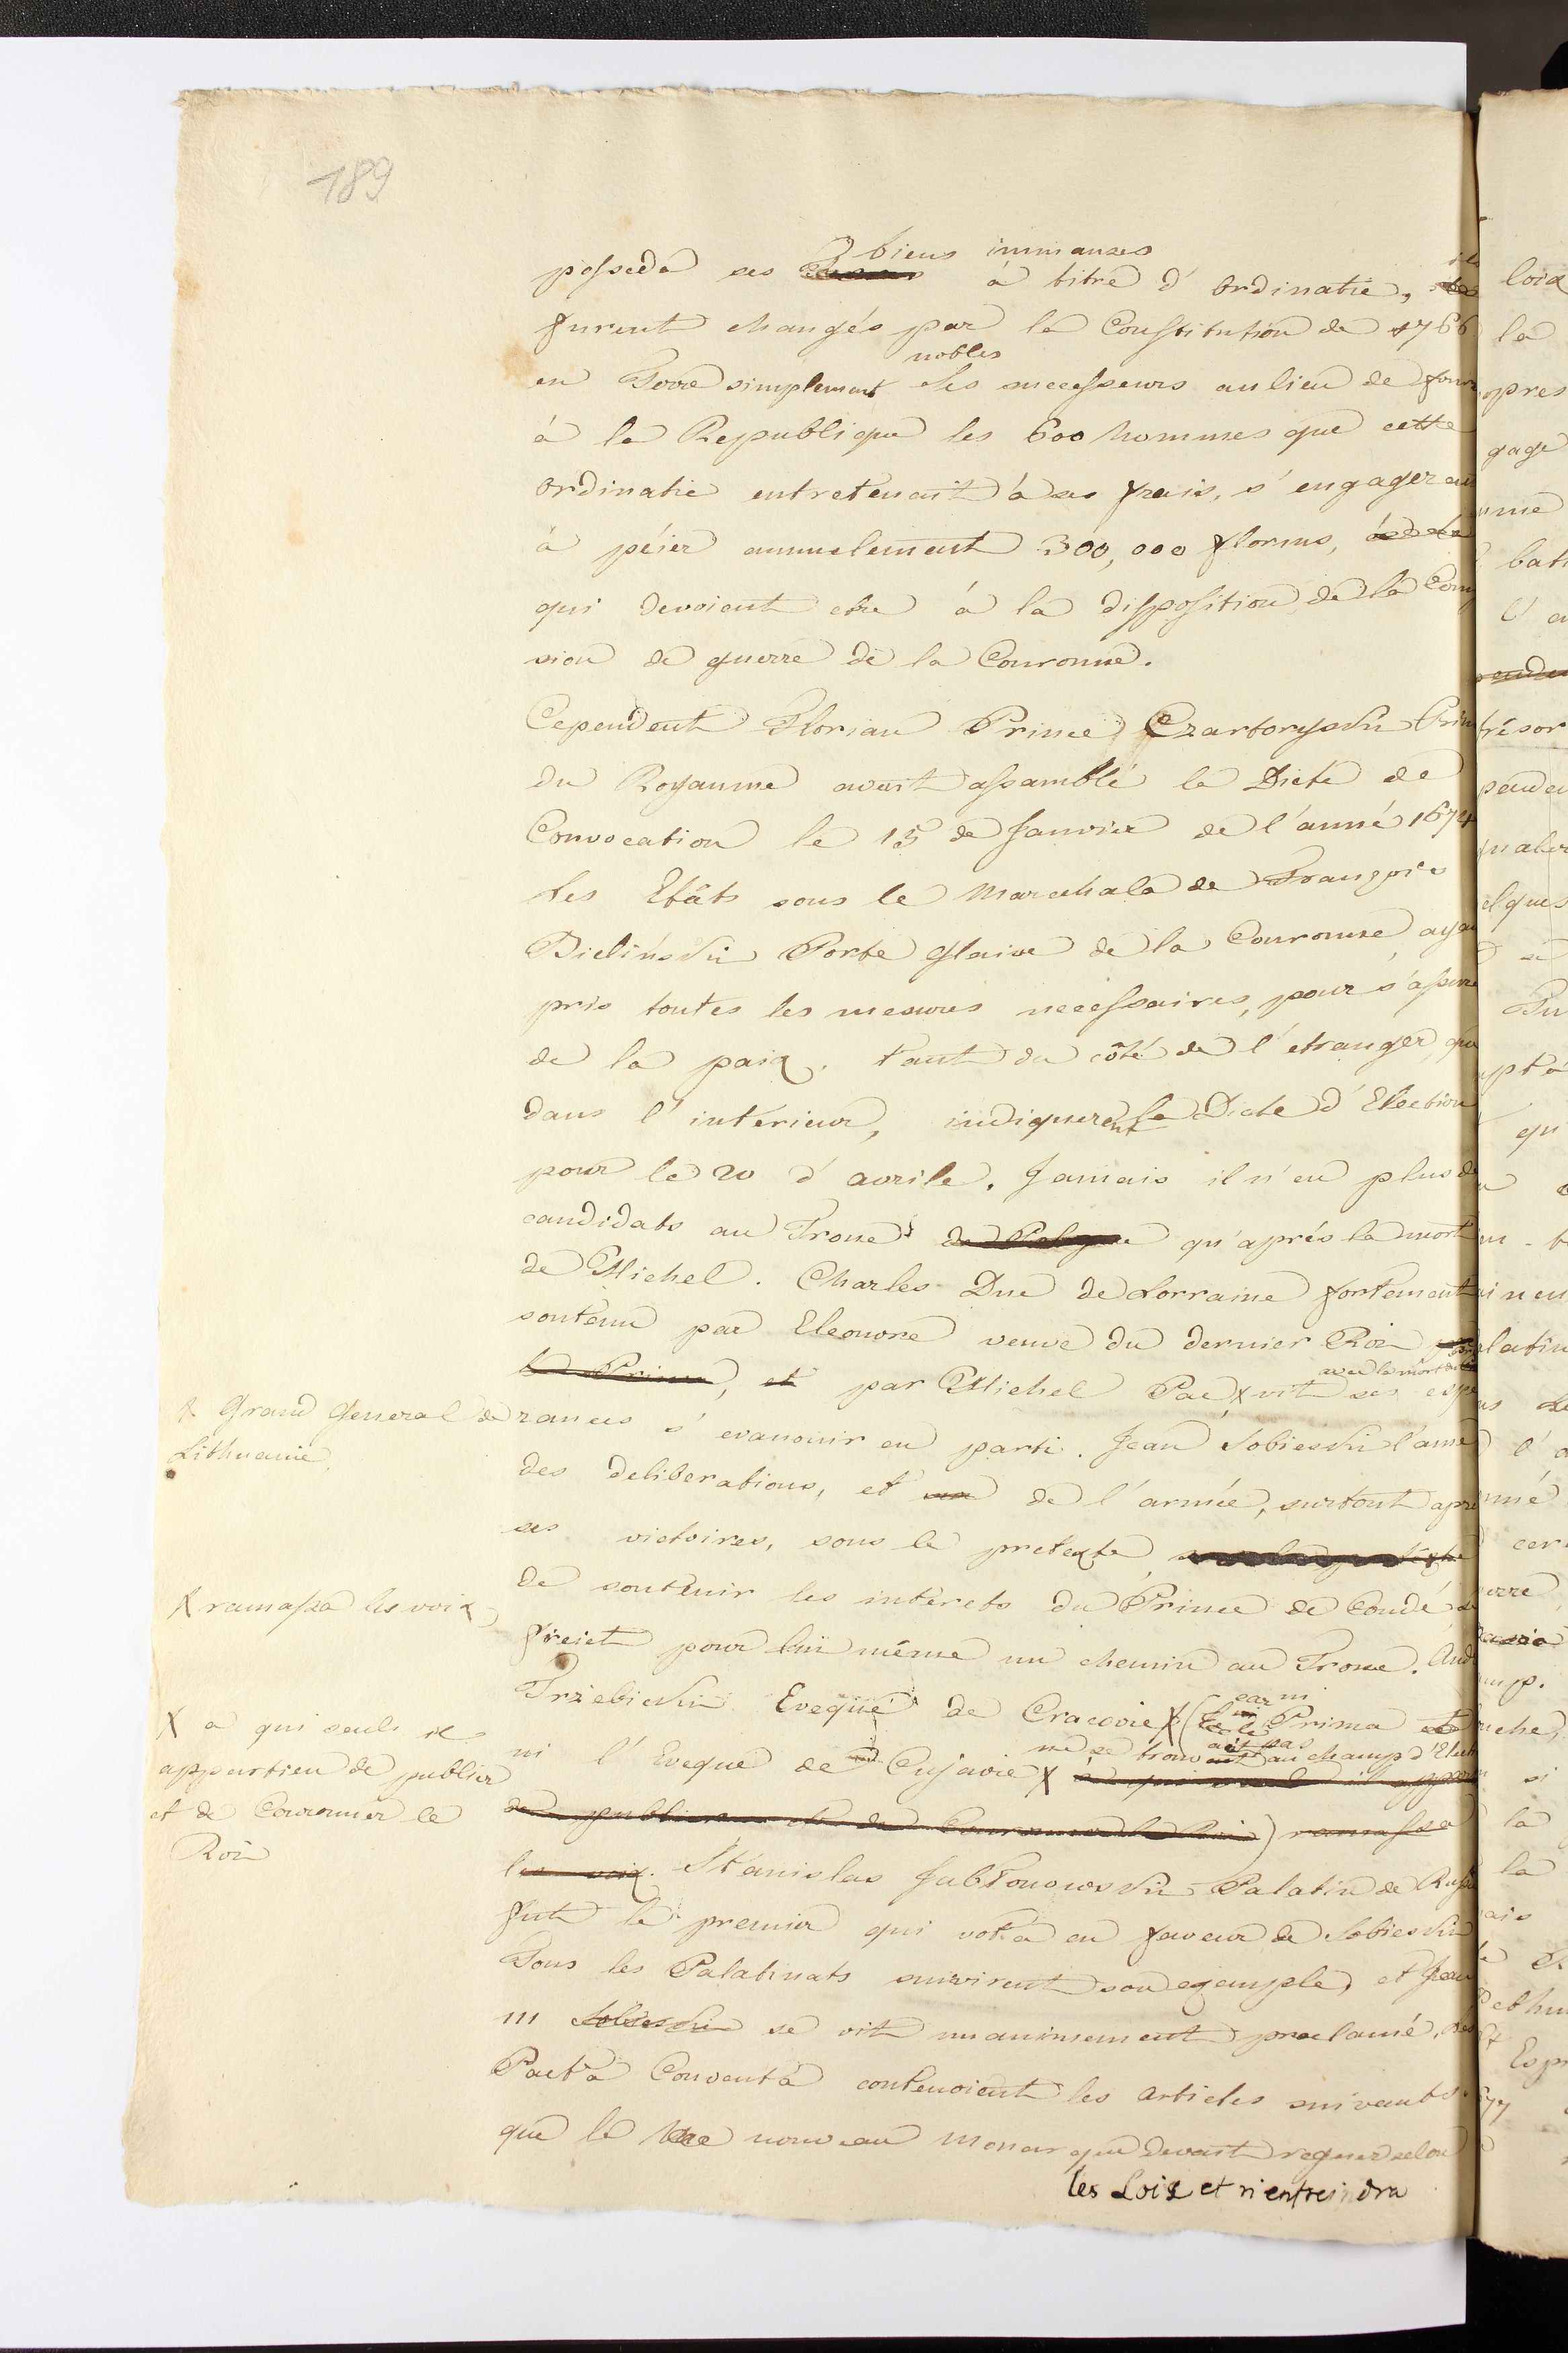 189
biens immanses
posseda ses à titre d'ordinatie,
furent changés par la Constitution de 1766
nobles
en Terre simplement Les successeurs au lieu de four
à la Republique les 600 hommes que cette
ordinatie entretenait à ses frais, s'engager
à péier annuelement 300,000 florins,
qui devoient etre à la disposition de la Com
sion de guerre de la Couronne.
Cependent Florian Prince Czartoryski Prim
du Royaume avait assamblé la Diete de
Convocation le 15 de Janvier de l'anné 1674
Les Etâts sous le Marechala de François
Bielinski Porte glaive de la Couronne aya
pris toutes les mesures necessaires, pour s'assure
de la paix, tant du côté de l'etranger que
dans l'intérieur, indiquerent la Diete d'Election
pour le 20 d'avrile. Jamais il n'eu plus de
candidats au Trone de Pologne qu'aprés la mort
de Michel. Charles Duc de Lorraine fortement
soutenu par Eleonore veuve du dernier Roi
avec la mort
le Prima, et par Michel Pac X vit ses espe
X Grand General de
Lithuanie
rances s'evanouir en parti. Jean Sobieski l'ame
des deliberations, et de l'armée, surtout apre
ses victoires, sous le pretexte
de soutenir les intérets du Prince de Condé se
X ramassa les voix
freiet pour lui même un chemin au Trone. And
Trzebicki Eveque de Cracovie X (car ni le Prima
ne se trouvait pas au champ d'Elect
ni l'Eveque de Cujavie X à qui seul il appar
X a qui seuls il
appartien de publier
et de Couronner le
Roi
de publier et de Couronner le Roi) ramassa
les voix. Stanislas Jabłonowski Palatin de Russie
fut le premier qui vota en faveur de Sobieski
Tous les Palatinats suivirent son exemple, et Jean
III Sobieski se vit unanimement proclamé. Les
Pacta Conventa contenoient les articles suivants
que le nouveau Monarque devait regner selon
les Loix et n'entreindra